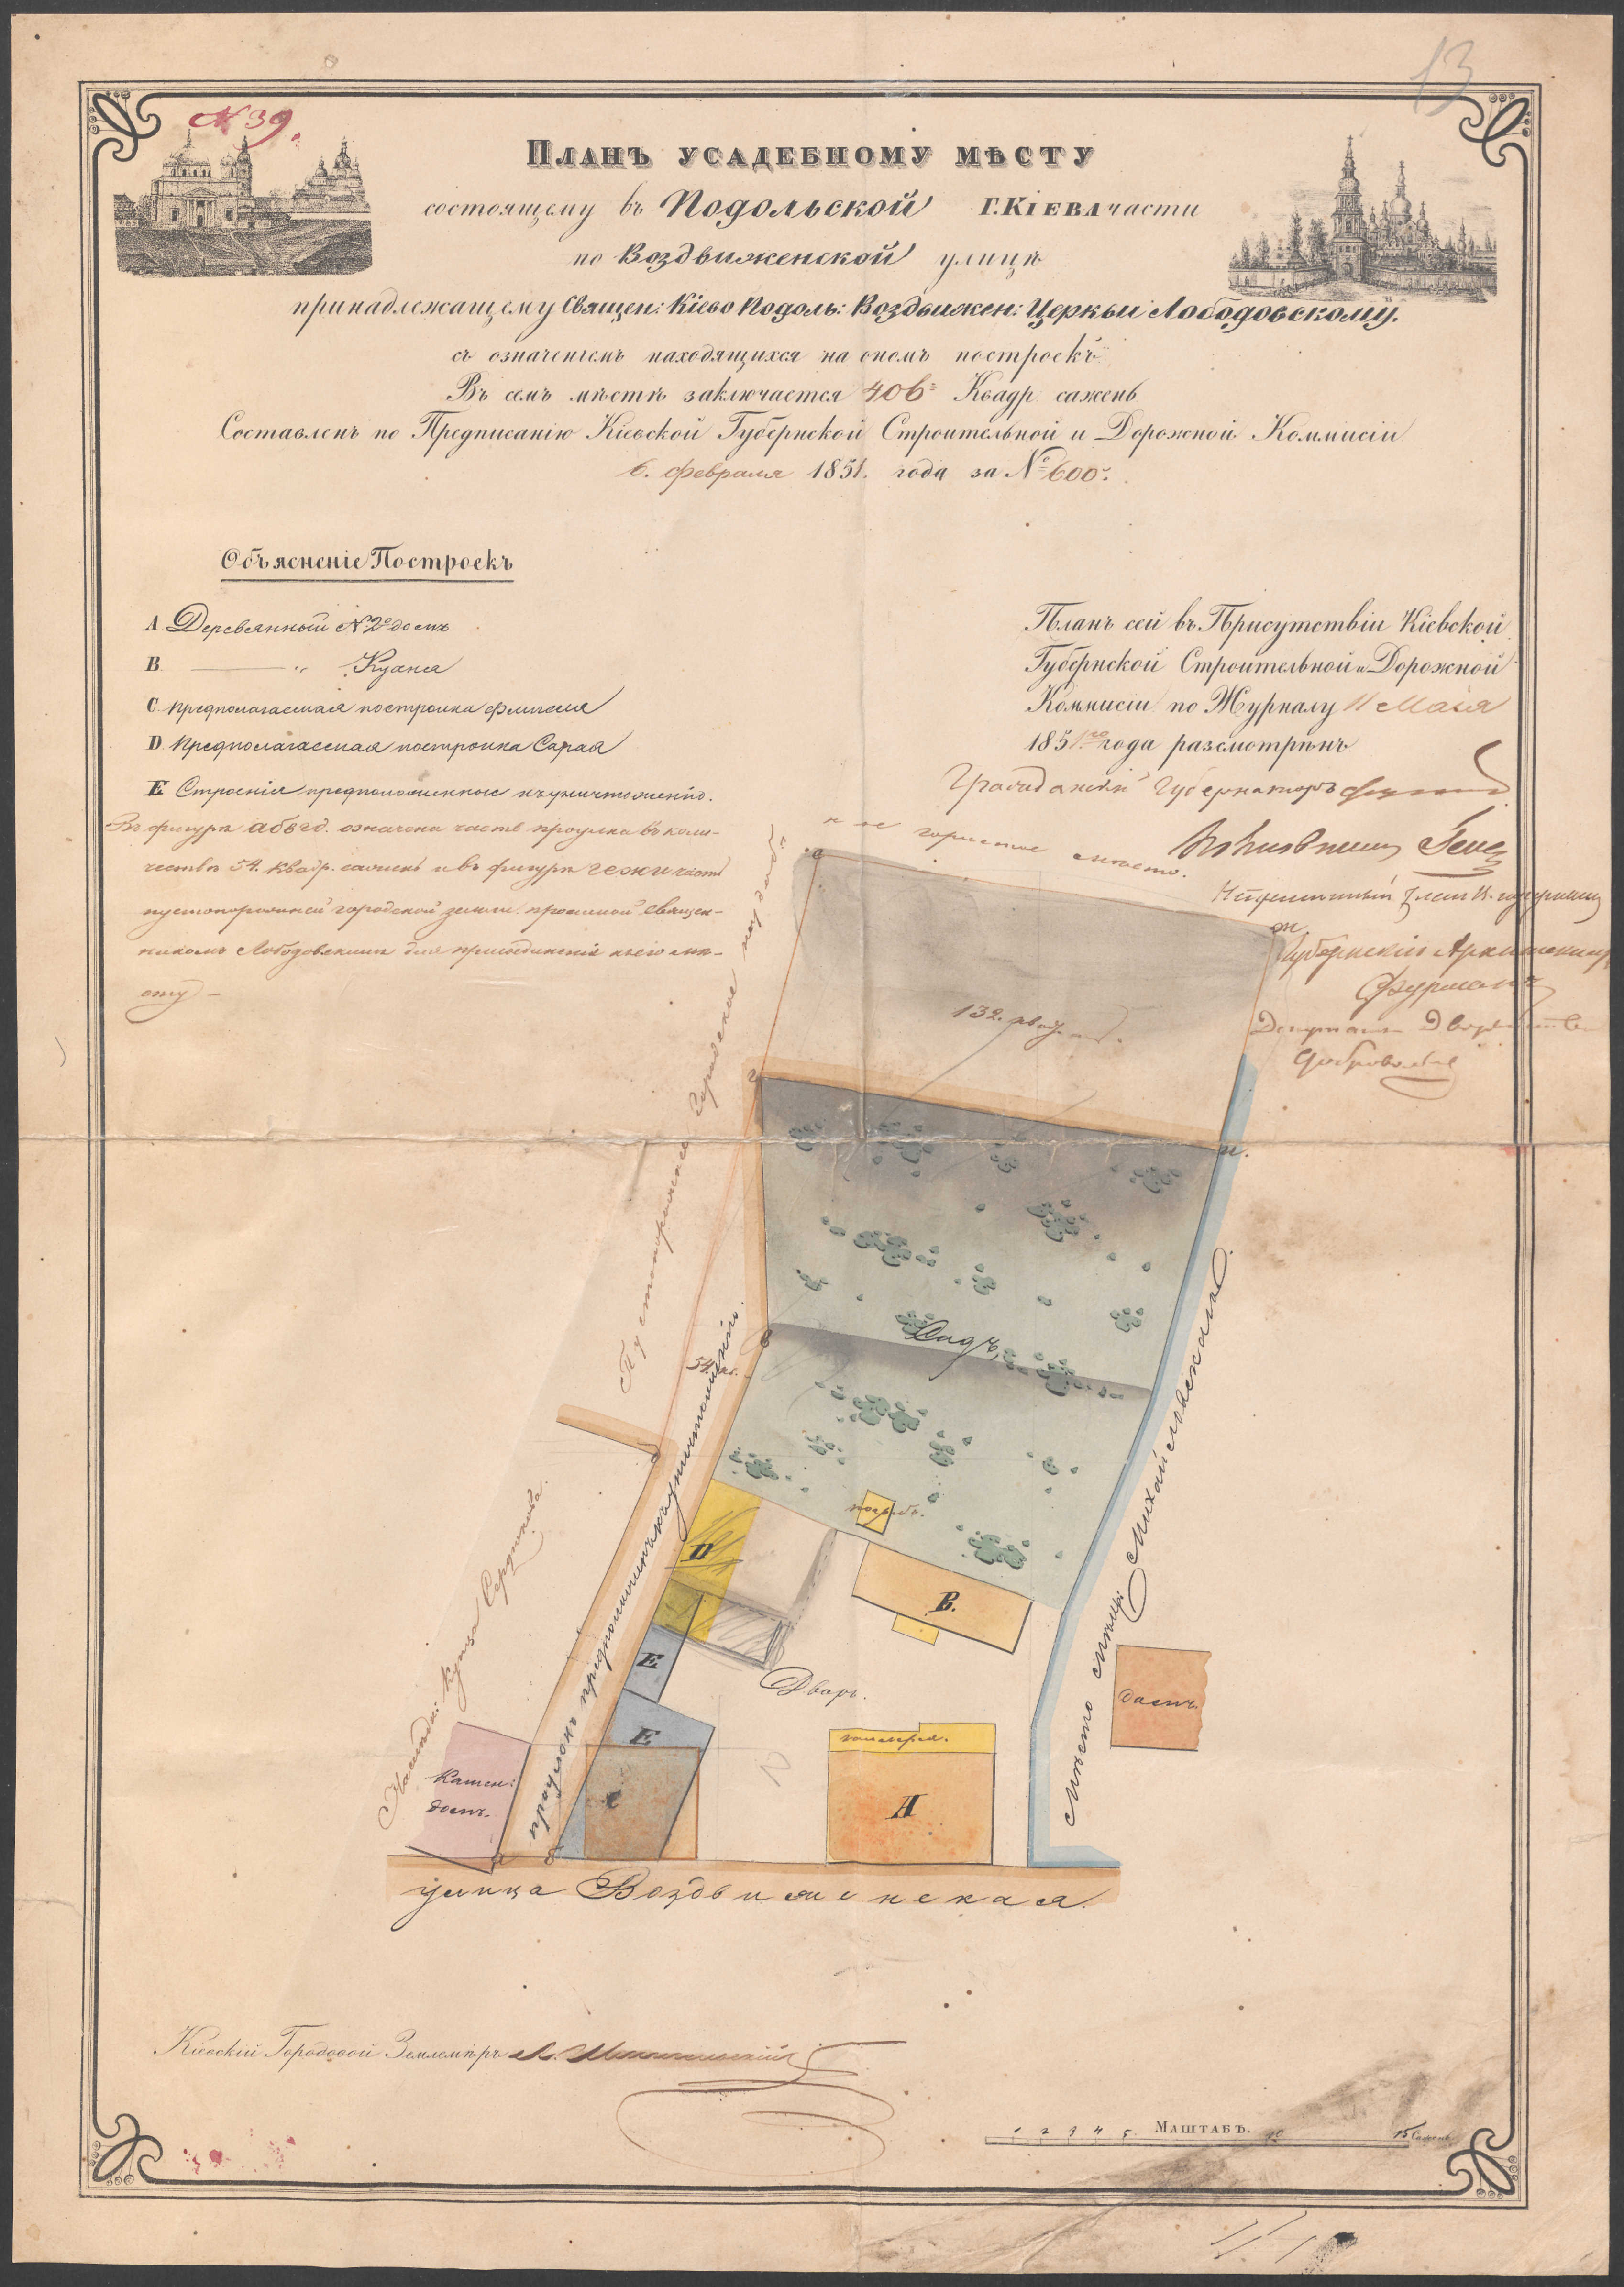 13
№ 39.
Планъ усадебному мѣсту
состоящему въ Подольской г. Кіева части
по Воздвиженской улицѣ
принадлежащему Священ: Кіево Подоль: Воздвижен: Церкви Лободовскому.
съ означеніемъ находящихся на ономъ построекъ
Въ семъ мѣстѣ заключается 406 Квадр сажень
Составленъ по Предписанію Кіевской Губернской Строительной и Дорожной Коммисіи
6. февраля 1851. года за № 600.
Объясненіе Построекъ
A. Деревянный № 2º домъ
B. — „ Кухня
C. Предполагаемая постройка флигеля
D. Предполагаемая постройка Сарая
E Строенія предположенные къ уничтоженію.
Въ фигурѣ абвгд. означена часть проулка въ коли-
чествѣ 54. квадр. сажень и въ фигурѣ гежи часть
пустопорожней городской земли просимой священ-
никомъ Лободовскимъ для присоединенія къ его мѣ-
сту —
Планъ сей въ Присутствіи Кіевской
Губернской Строительной и Дорожной
Коммисіи по Журналу 11 Маія
1851го года разсмотрѣнъ
Гражданскій Губернаторъ
Губернскій Архитекторъ
Депутатъ Дворянства
гористое мѣсто.
е
ж.
132. квад. саж.
г
и.
Пустопорожнее Городское
Садъ,
в
54. кв.
д
погребъ.
D
B.
E
Дворъ.
E
C
галлерея.
A
Камен:
домъ.
домъ.
Наслѣдн: Купца Сердюкова.
проулокъ предположенъ къ уничтоженію.
мѣсто мѣщан: Михайловскаго.
а
б
улица Воздвиженская.
Кіевскій Городовой Землемѣръ
1 2 3 4 5 Маштабъ. 10 15 Сажень